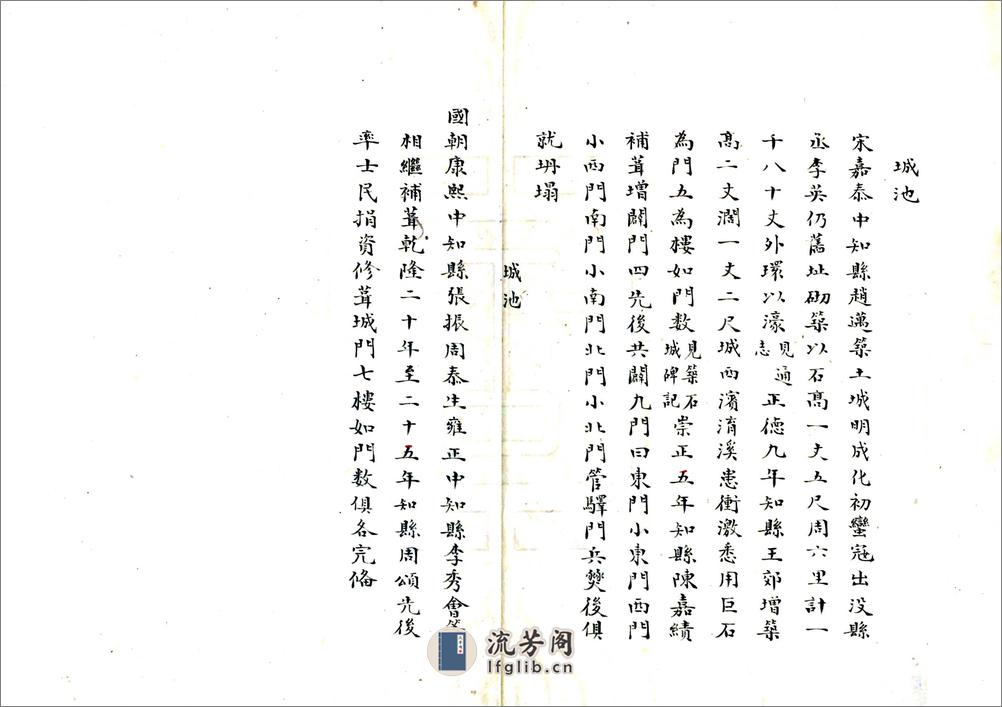 城池
宋嘉泰中知縣趙邁築土城明成化初蠻冦出没縣
丞李英仍舊址砌築以石高一丈五尺周六里計一
千八十丈外環以濠見通志正德九年知縣王郊增築
高二丈濶一丈二尺城西濱淯溪患衝激悉用巨石
為門五為樓如門数見築石城碑記崇正五年知縣陳嘉績
補葺增闢門四先後共闢九門曰東門小東門西門
小西門南門小南門北門小北門管驛門兵燹後俱
就坍塌
城池
國朝康熙中知縣張振周泰生雍正中知縣李秀會等
相繼補葺乾隆二十年至二十五年知縣周頌先後
率士民捐資修葺城門七樓如門数俱各完俻
流芳阁
lfglib.cn